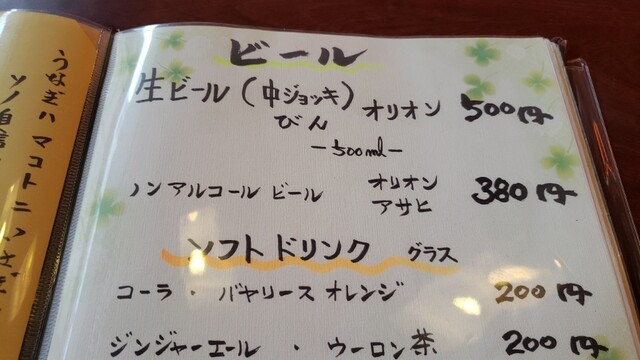 ビール
生ビール（中ジョッキ） オリオン 500円
びん
-500ml-
ノンアルコールビール オリオン 380円
アサヒ
ソフトドリンク グラス
コーラ・バヤリースオレンジ 200円
ジンジャーエール・ウーロン茶 200円
うなぎハマコトニ
ソノ自信